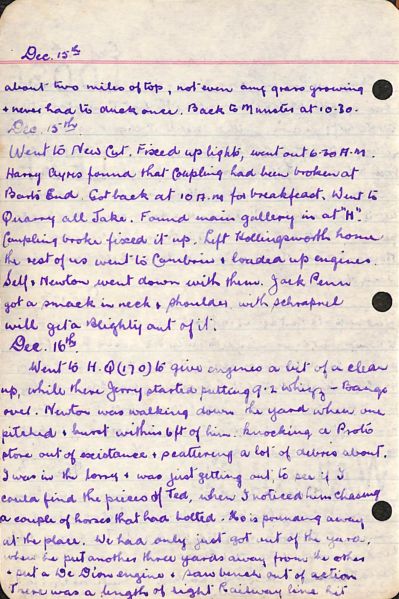 Dec. 15th
about two miles of top, not even any grass growing
+ never had to duck once. Back to Munster at 10-30.
Dec. 15th.
Went to New Cut. Fixed up lights, went out 6-30 A.M.
Harry Ayres found that Coupling had been broken at
Barts End. Got back at 10 A.M for breakfast. Went to
Quarry all Jake. Found main gallery in at "H".
Coupling broke fixed it up. Left Hollingsworth home
the rest of us went to Cambrin + loaded up engines.
Self + Newton went down with them. Jack Penn
got a smack in neck + shoulder with schrapnel
will get a Blighty out of it.
Dec. 16th.
Went to H.Q (170) to give engines a bit of a clean
up, while there Jerry started putting 9.2 whizz-Bangs
over. Newton was walking down the yard when one
pitched + burst within 6ft of him. knocking a Proto
store out of existance + scattering a lot of debris about.
I was in the lorry + was just getting out, to see if I
could find the pieces of Ted, when I noticed him chasing
a couple of horses that had bolted. He is pounding away
at the place. We had only just got out of the yard,
when he put another three yards away from the other
+ put a De Dion engine + saw bench out of action
There was a length of light Railway line hit